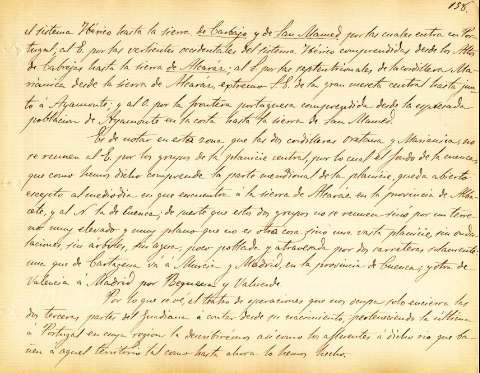 158.
el sistema Ibérico hasta la sierra de Carbajo, y de San Mamed por las cuales entra en Por-
tugal; al E. por las vertientes occidentales del sistema Ibérico comprendidas desde los Altos
de Cabrejas hasta la sierra de Alcaráz; al S. por las septentrionales de la cordillera Ma-
riánica desde la sierra de Alcaráz, extremo S.E. de la gran meseta central hasta jun-
to á Ayamonte; y al O. por la frontera portuguesa comprendida desde la expresada
poblacion de Ayamonte en la costa hasta la sierra de San Mamed.
Es de notar en esta zona que las dos cordilleras Oretana y Mariánica, no
se reunen al E. por los grupos de la planicie central, por lo cual el fondo de la cuenca
que como hemos dicho comprende la parte meridional de la planicie, queda abierto
escepto al mediodia en que encuentra á la sierra de Alcaráz en la provincia de Alba-
cete, y al N. la de Cuenca; de suerte que estos dos grupos no se reunen sinó por un terre-
no muy elevado y muy plano que no es otra cosa sino una vasta planicie, sin ondu-
laciones, sin arboles, sin agua, poco poblada y atravesada por dos carreteras solamente:
una que de Cartagena vá á Murcia y Madrid, en la provincia de Cuenca; y otra de
Valencia á Madrid por Requena y Valverde.
Por lo que se vé, el teatro de operaciones que nos ocupa solo encierra las
dos terceras partes del Guadiana á contar desde su nacimiento, perteneciendo la última
á Portugal en cuya region la describirémos asi como los afluentes á dicho rio que ba-
ñen á aquel territorio tal como hasta ahora lo hemos hecho.